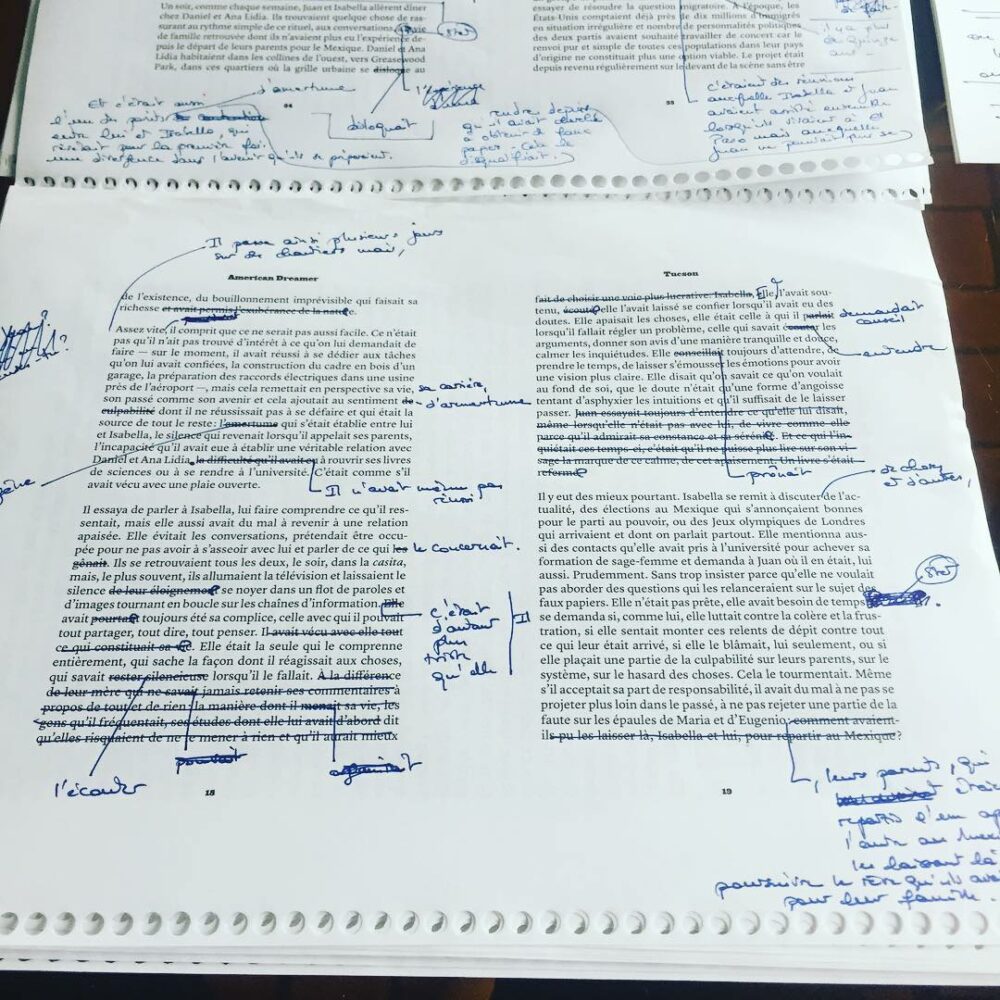 Un soir, comme chaque semaine, Juan et Isabella allèrent dîner
chez Daniel et Ana Lidia. Ils trouvaient quelque chose de ras-
surant au rythme simple de ce rituel, aux conversations
de famille retrouvée dont ils n'avaient plus eu l'expérience de-
puis le départ de leurs parents pour le Mexique. Daniel et Ana
Lidia habitaient dans les collines de l'ouest, vers Greaswood
Park, dans ces quartiers où la grille urbaine se disloque au
d'amertume
disloquait
Et c'était aussi
entre lui et Isabella, qui
résistait pour la première fois.
une divergence dans l'avenir qu'ils se préparaient.
54
essayer de résoudre la question migratoire. À l'époque, les
États-Unis comptaient déjà près de dix millions d'immigrés
en situation irrégulière et nombre de personnalités politiques
des deux partis avaient souhaité travailler de concert car le
renvoi pur et simple de toutes ces populations dans leur pays
d'origine ne constituait plus une option viable. Le projet était
depuis revenu régulièrement sur le devant de la scène sans être
55
qu'il avait cherché
à obtenir de faux
papiers
c'étaient des réunions
Isabella et Juan
avaient assisté ensemble
lorsqu'ils étaient à El
Paso mais
Juan ne pouvait plus se
Il passa ainsi plusieurs jours
sur des chantiers mais,
American Dreamer
de l'existence, du bouillonnement imprévisible qui faisait sa
richesse et avait permis l'exubérance de la nature.
Assez vite, il comprit que ce ne serait pas aussi facile. Ce n'était
pas qu'il n'ait pas trouvé d'intérêt à ce qu'on lui demandait de
faire — sur le moment, il avait réussi à se dédier aux tâches
qu'on lui avait confiées, la construction du cadre en bois d'un
garage, la préparation des raccords électriques dans une usine
près de l'aéroport —, mais cela remettait en perspective sa vie,
sa carrière,
son passé comme son avenir et cela ajoutait au sentiment de
d'amertume
culpabilité dont il ne réussissait pas à se défaire et qui était la
source de tout le reste: l'amertume qui s'était établie entre lui
et Isabella, le silence qui revenait lorsqu'il appelait ses parents,
l'incapacité qu'il avait eue à établir une véritable relation avec
Daniel et Ana Lidia, la difficulté qu'il avait eu à rouvrir ses livres
de sciences ou à se rendre à l'université. C'était comme s'il
avait vécu avec une plaie ouverte.
Il n'avait même pas
réussi
Il essaya de parler à Isabella, lui faire comprendre ce qu'il res-
sentait, mais elle aussi avait du mal à revenir à une relation
apaisée. Elle évitait les conversations, prétendait être occu-
pée pour ne pas avoir à s'asseoir avec lui et parler de ce qui les
le concernait.
gênait. Ils se retrouvaient tous les deux, le soir, dans la casita,
mais, le plus souvent, ils allumaient la télévision et laissaient le
silence de leur éloignement se noyer dans un flot de paroles et
d'images tournant en boucle sur les chaînes d'information. Elle
avait pourtant toujours été sa complice, celle avec qui il pouvait
tout partager, tout dire, tout penser. Il avait vécu avec elle tout
ce qui constituait sa vie. Elle était la seule qui le comprenne
entièrement, qui sache la façon dont il réagissait aux choses,
qui savait rester silencieuse lorsqu'il le fallait. À la différence
de leur mère qui ne savait jamais retenir ses commentaires à
propos de tout et de rien, la manière dont il menait sa vie, les
gens qu'il fréquentait, ses études dont elle lui avait d'abord dit
qu'elles risquaient de ne le mener à rien et qu'il aurait mieux
c'était
d'autant
plus
triste
qu'elle
Il
l'écouter
18
Tucson
fait de choisir une voie plus lucrative. Isabella, Elle l'avait sou-
tenu, écouté, elle l'avait laissé se confier lorsqu'il avait eu des
doutes. Elle apaisait les choses, était celle à qui il parlait
demandait
conseil
lorsqu'il fallait régler un problème, celle qui savait écouter les
arguments, donner son avis d'une manière tranquille et douce,
entendre
calmer les inquiétudes. Elle conseillait toujours d'attendre, de
prendre le temps, de laisser s'émousser les émotions pour avoir
une vision plus claire. Elle disait qu'on savait ce qu'on voulait
au fond de soi, que le doute n'était qu'une forme d'angoisse
tentant d'asphyxier les intuitions et qu'il suffisait de le laisser
passer. Juan essayait toujours d'entendre ce qu'elle lui disait,
même lorsqu'elle n'était pas avec lui, de vivre comme elle
parce qu'il admirait sa constance et sa sérénité. Et ce qui l'in-
quiétait ces temps-ci, c'était qu'il ne puisse plus lire sur son vi-
sage la marque de ce calme, de cet apaisement. Un livre s'était
refermé.
prônait
de choses
et d'autres,
Il y eut des mieux pourtant. Isabella se remit à discuter de l'ac-
tualité, des élections au Mexique qui s'annonçaient bonnes
pour le parti au pouvoir, ou des Jeux olympiques de Londres
qui arrivaient et dont on parlait partout. Elle mentionna aus-
si des contacts qu'elle avait pris à l'université pour achever sa
formation de sage-femme et demanda à Juan où il en était, lui
aussi. Prudemment. Sans trop insister parce qu'elle ne voulait
pas aborder des questions qui les relanceraient sur le sujet des
faux papiers. Elle n'était pas prête, elle avait besoin de temps
se demanda si, comme lui, elle luttait contre la colère et la frus-
tration, si elle sentait monter ces relents de dépit contre tout
ce qui leur était arrivé, si elle le blâmait, lui seulement, ou si
elle plaçait une partie de la culpabilité sur leurs parents, sur le
système, sur le hasard des choses. Cela le tourmentait. Même
s'il acceptait sa part de responsabilité, il avait du mal à ne pas se
projeter plus loin dans le passé, à ne pas rejeter une partie de la
faute sur les épaules de Maria et d'Eugenio, comment avaient-
ils pu les laisser là, Isabella et lui, pour repartir au Mexique?
, leurs parents, qui
repartis l'un après
l'autre au
les laissant là
poursuivre le rêve qu'ils
pour leur famille.
19